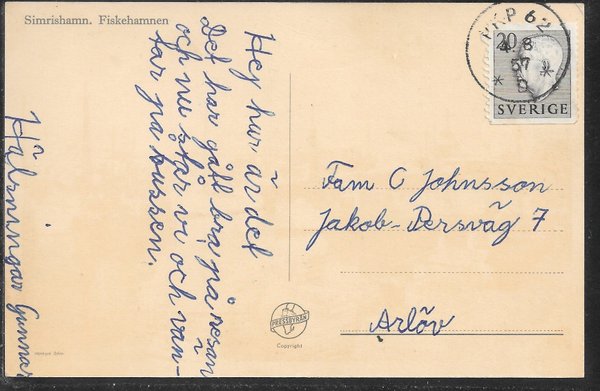 Simrishamn. Fiskehamnen
Hej hur är det
Det har gått bra på resan
och nu står vi och van-
tar på bussen.
Hälsningar Gunnar
PKP 62
4 8
57
D
20
SVERIGE
Fam C Johnsson
Jakob-Persväg 7
Arlöv
PRESSBYRÅN
Copyright